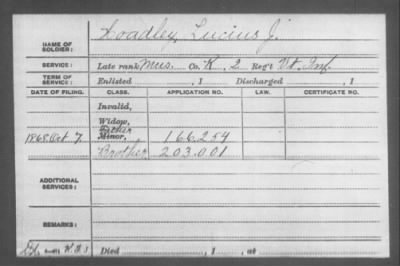 Hoadley, Lucius J.
NAME OF SOLDIER:
SERVICE: Late rank Mus. Co. K, 2 Reg't Vt. Inf.
TERM OF SERVICE: Enlisted , 1 Discharged , 1
DATE OF FILING. CLASS. APPLICATION NO. LAW. CERTIFICATE NO.
Invalid,
Widow,
Father
1868 Oct. 7. Minor, 166.254
Brother 203.001
ADDITIONAL SERVICES:
REMARKS:
Died , 1 , at